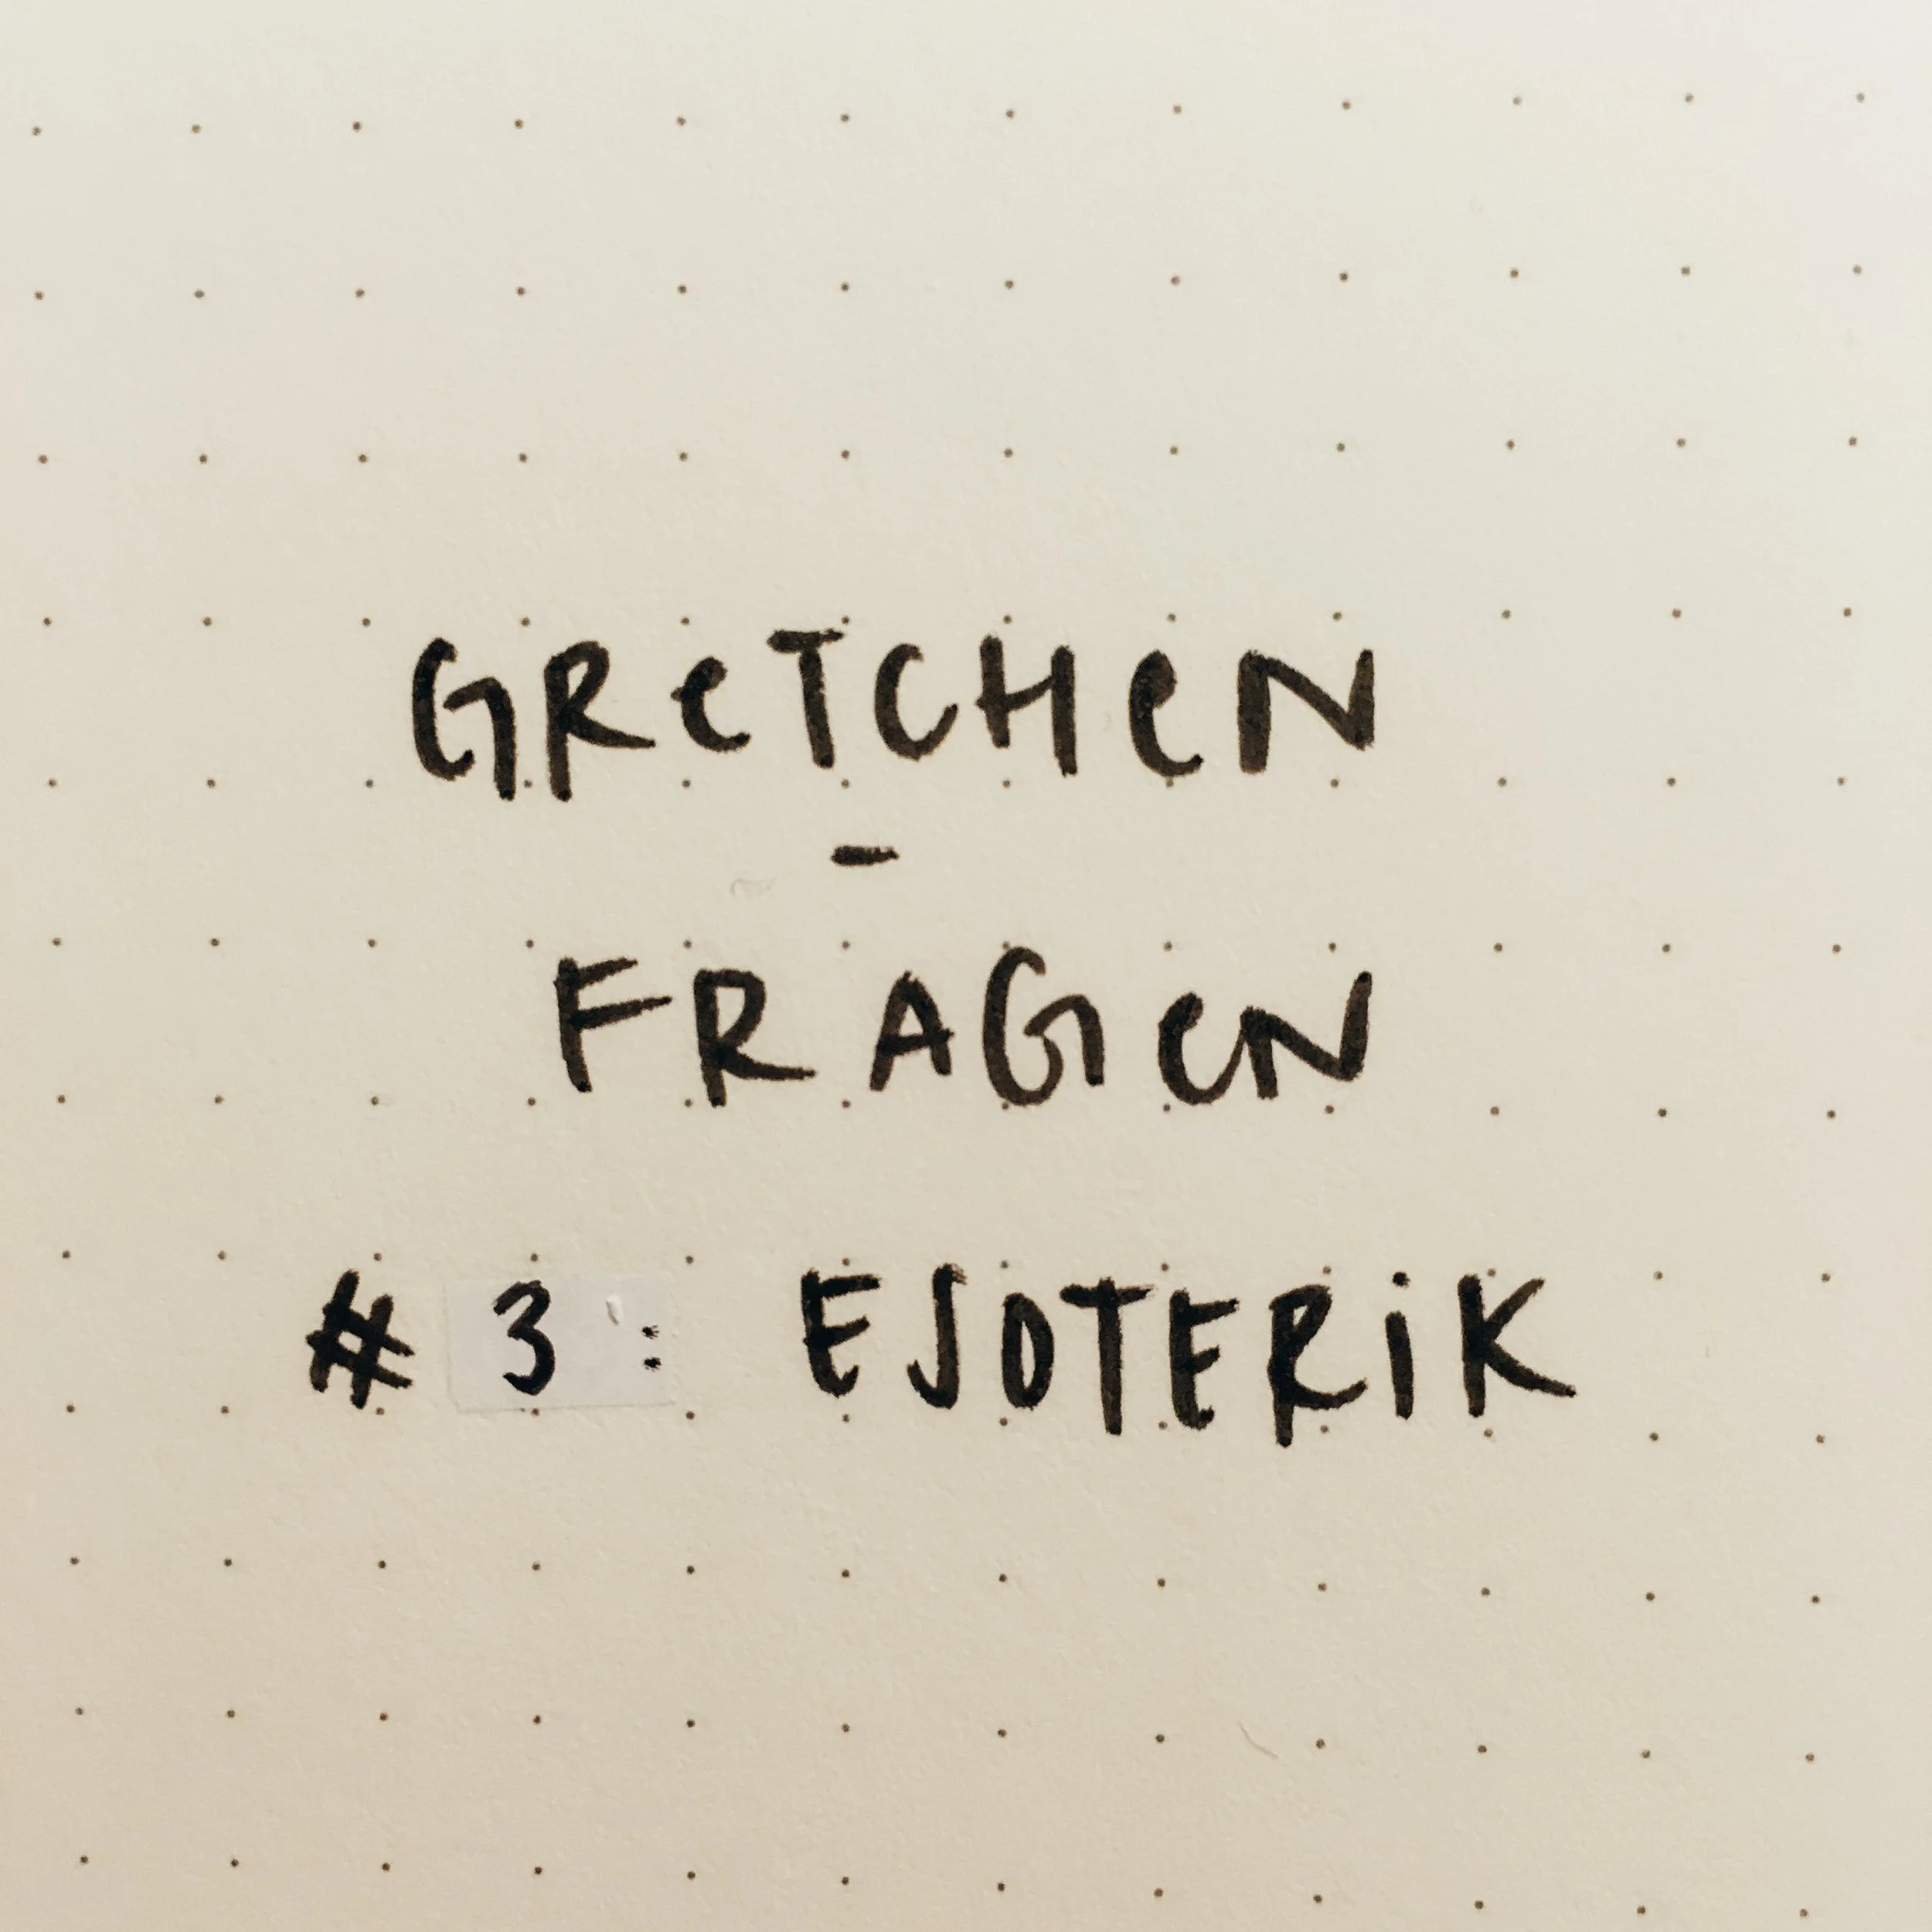 GReTCHeN
-
FRAGeN
# 3: ESOTERiK